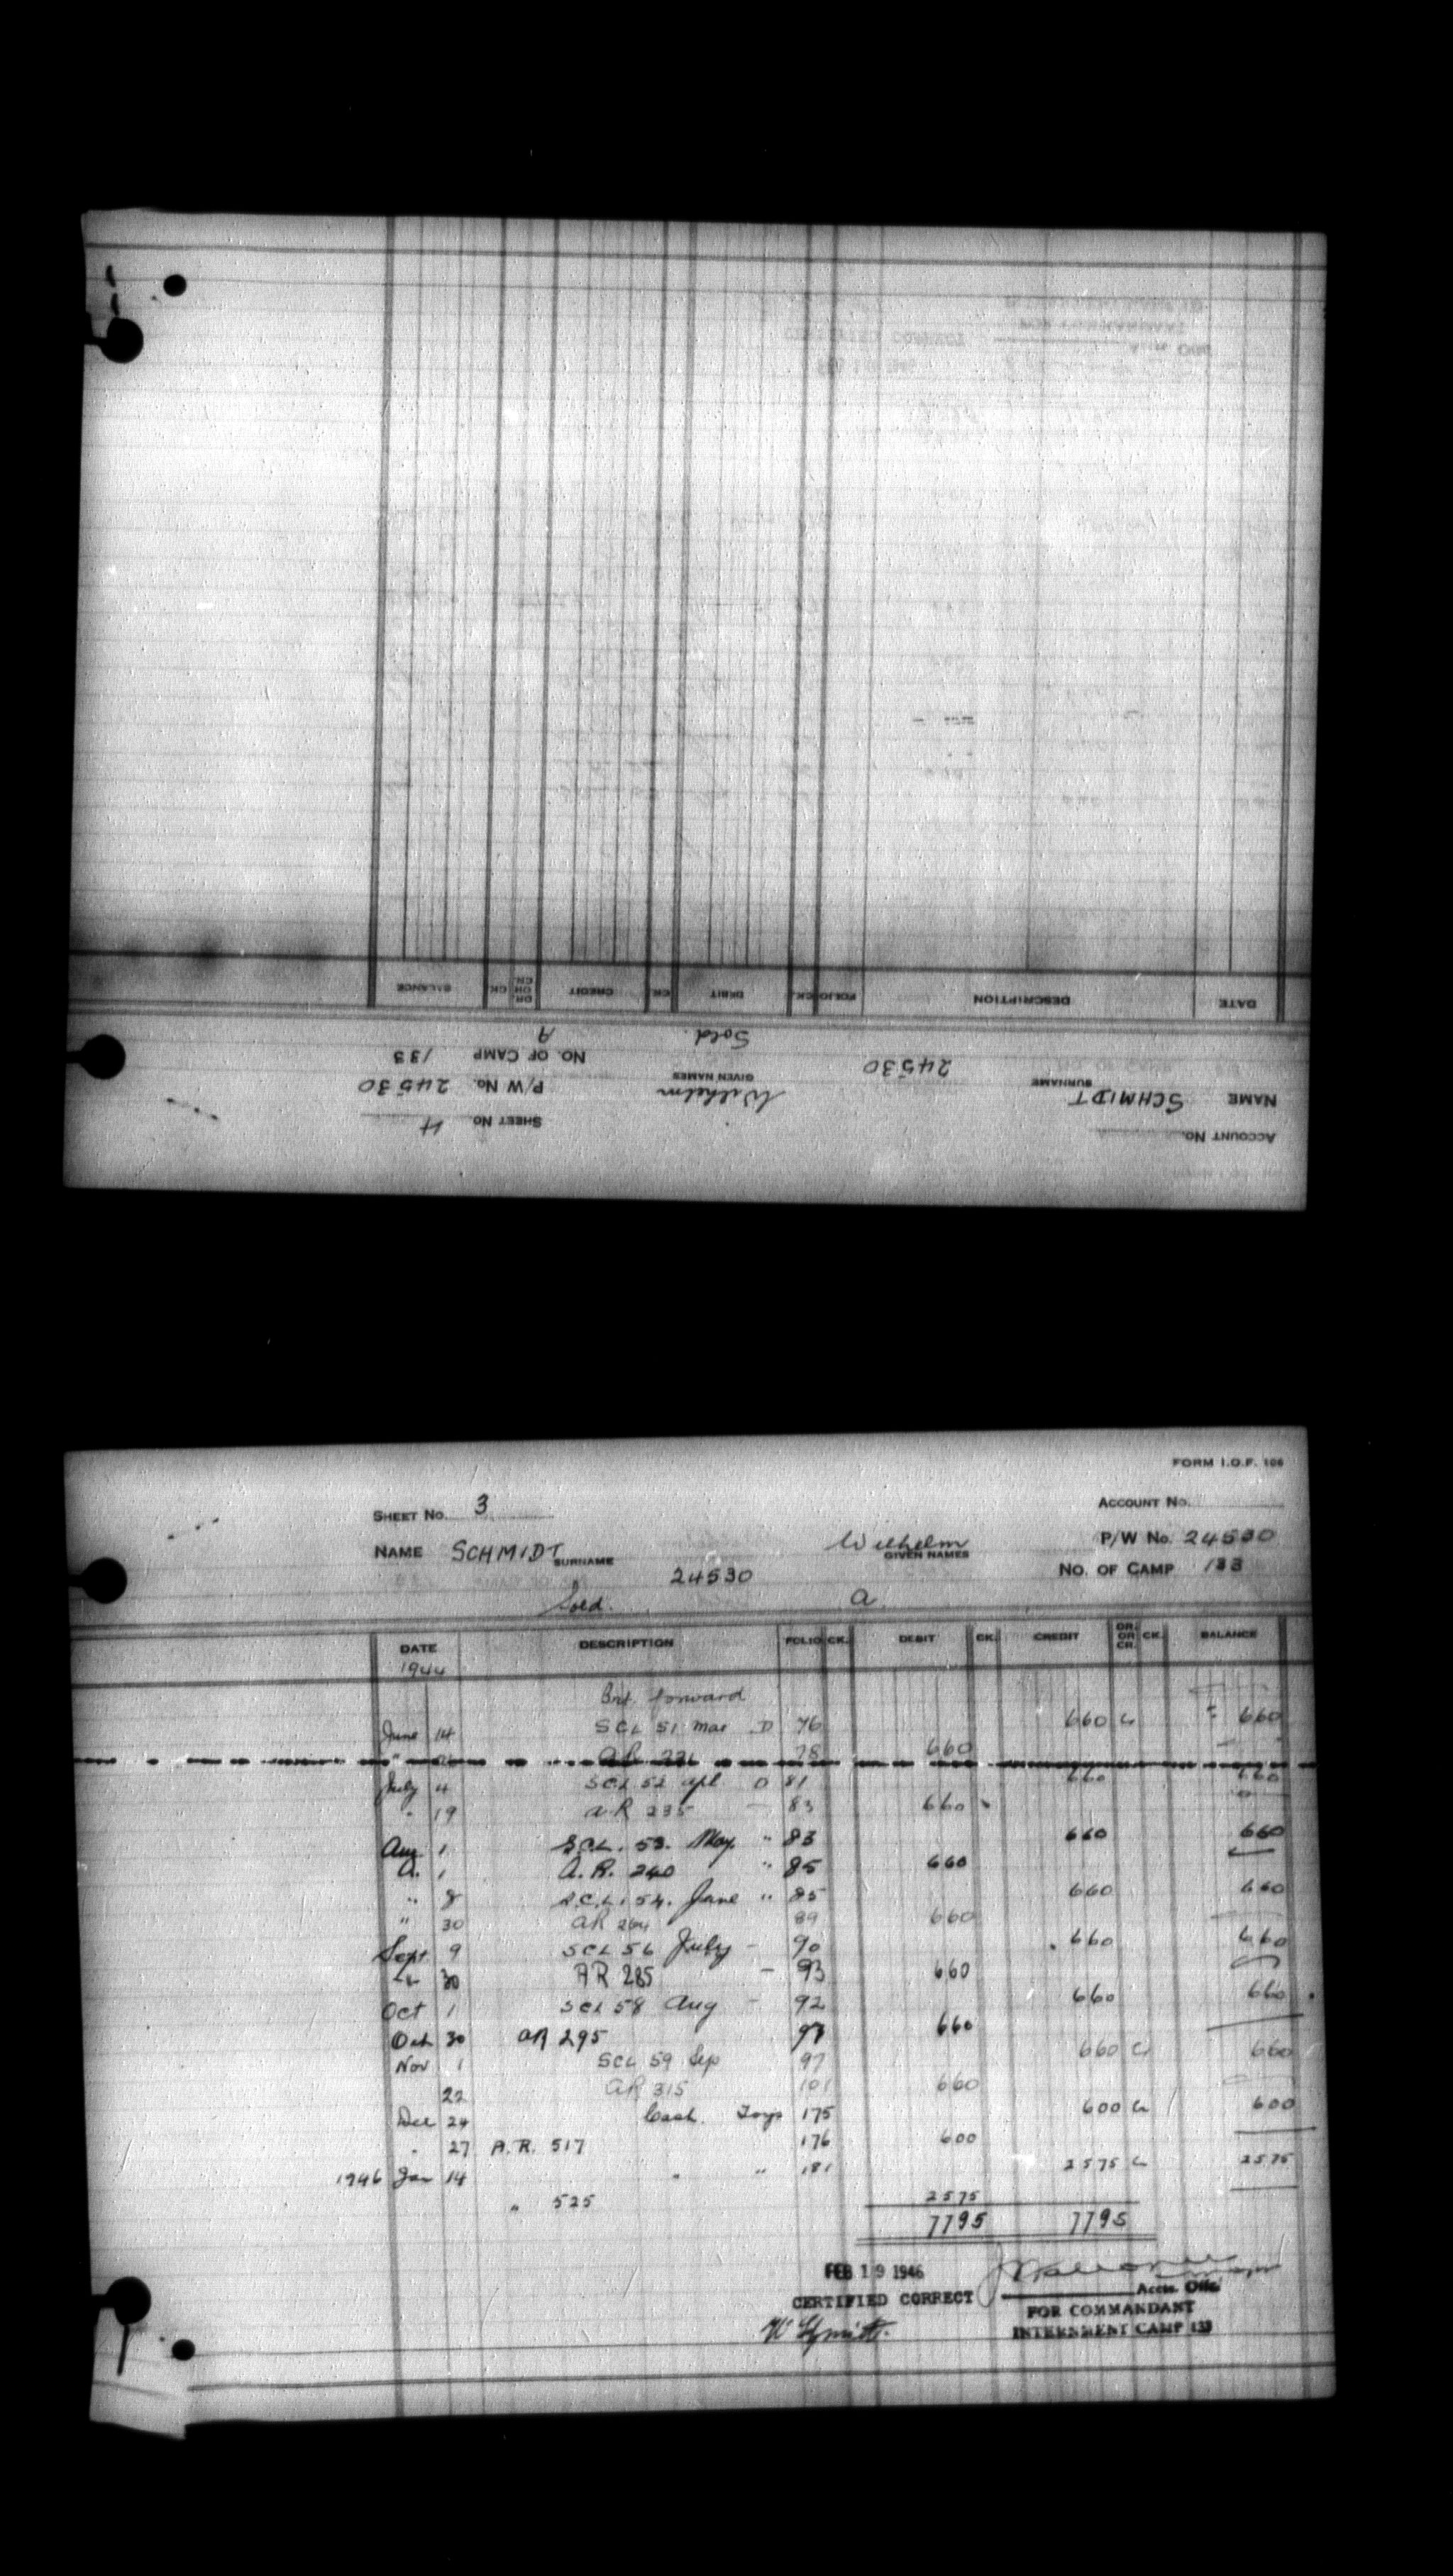 ACCOUNT No.
SHEET No. 4
NAME SCHMIDT SURNAME 24530 Wilhelm GIVEN NAMES P/W No. 24530
Sold. A NO. OF CAMP 133
DATE DESCRIPTION FOLIO CK. DEBIT CK. CREDIT DR. OR CR. CK. BALANCE
FORM I.O.F. 106
SHEET No. 3 ACCOUNT No.
NAME SCHMIDT SURNAME 24530 Wilhelm GIVEN NAMES P/W No. 24530
Sold. a NO. OF CAMP 133
DATE DESCRIPTION FOLIO CK. DEBIT CK. CREDIT DR. OR CR. CK. BALANCE
1944
Brt. forward
June 14 SCL 51 Mar D 76 660 Cr 660
" AR 78 660
July 4 SCL 52 Apl D 81 660 660
" 19 a.R 235 - 83 660
Aug 1 S.C.L. 53. May. " 83 660 660
A. 1 A.R. 240 " 85 660
" 8 S.C.L. 54. June " 85 660 660
" 30 aR 264 89 660
Sept 9 SCL 56 July - 90 660 660
" 30 AR 285 - 93 660
Oct 1 SCL 58 Aug - 92 660 660
Oct 30 AR 295 97 660
Nov 1 SCL 59 Sep 97 660 Cr 660
22 AR 315 101 660
Dec 24 Cash. Toys 175 600 Cr 600
" 27 A.R. 517 176 600
1946 Jan 14 " " 181 2575 Cr 2575
" 525 2575
7795 7795
FEB 19 1946
CERTIFIED CORRECT Accts. Offr.
FOR COMMANDANT
INTERNMENT CAMP 133